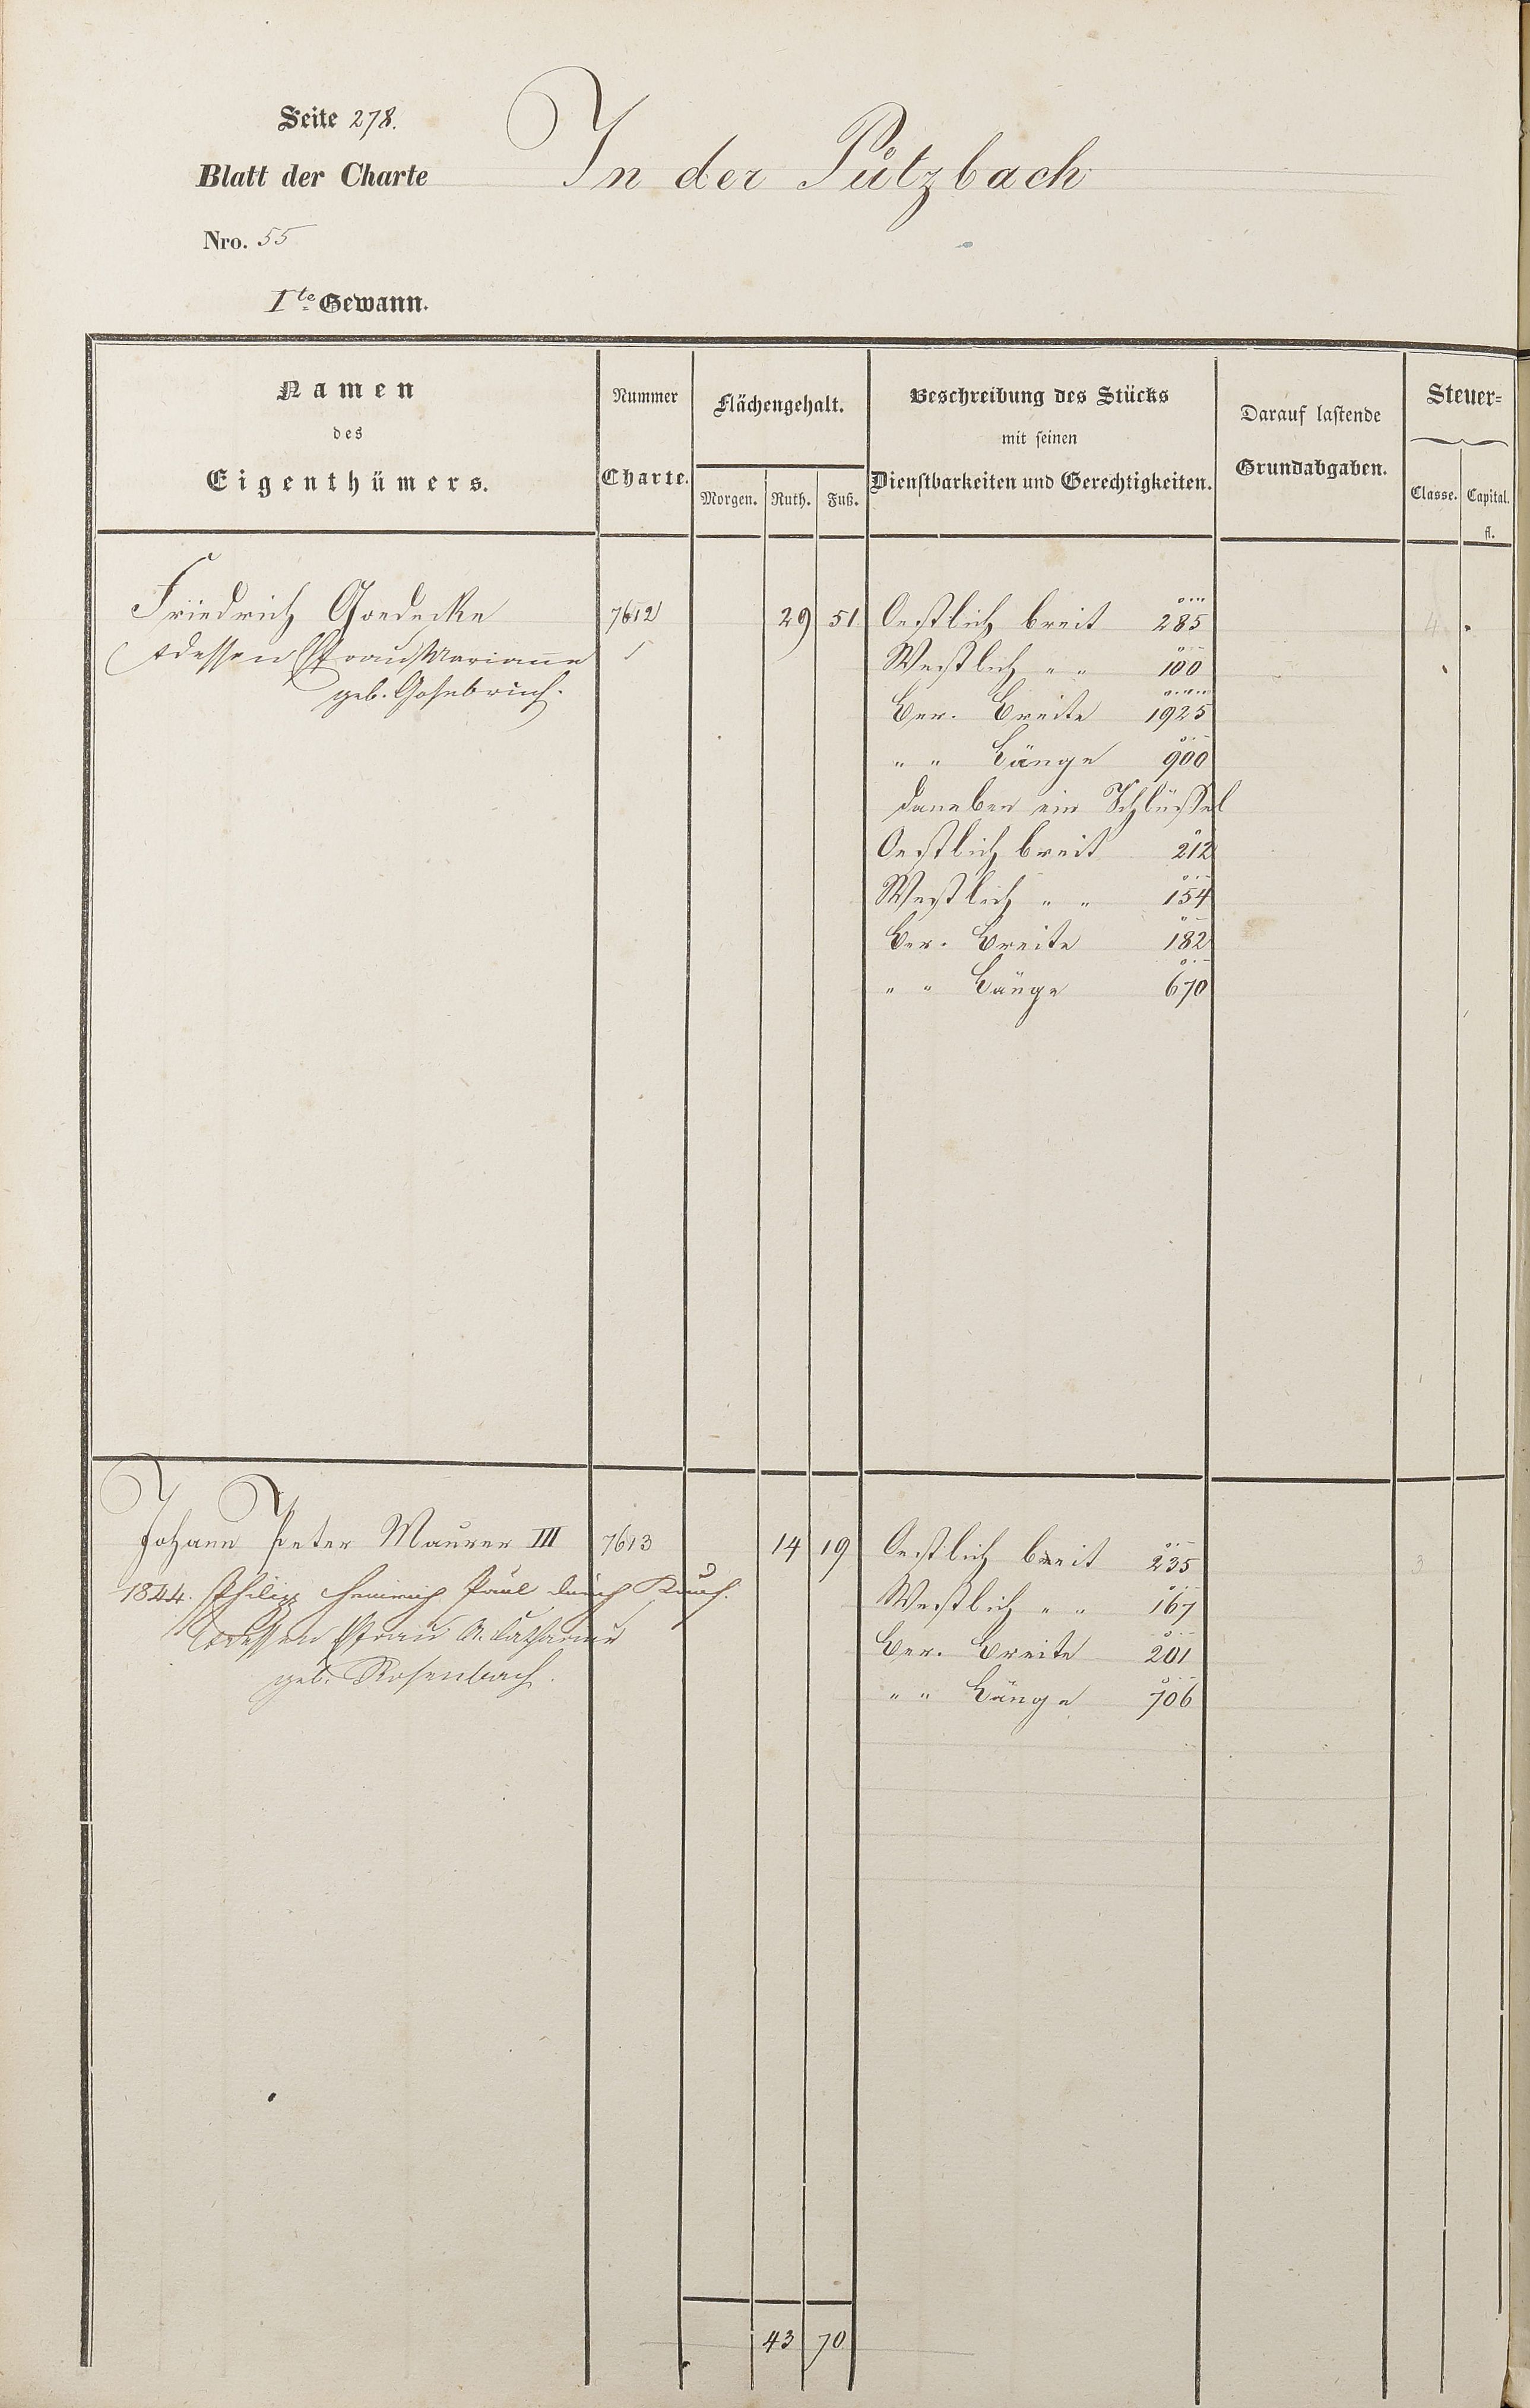 Seite 278.
Blatt der Charte In der Pützbach
Nro. 55
Ite Gewann.
Namen
des
Eigenthümers.
Nummer
Charte.
Flächengehalt.
Morgen. Ruth. Fuß.
Beschreibung des Stücks
mit seinen
Dienstbarkeiten und Gerechtigkeiten.
Darauf lastende
Grundabgaben.
Steuer=
Classe. Capital.
fl.
Friedrich Goedecke 7612 29 51 Oestlich breit 285 4
dessen Frau Marianne Westlich " " 100
geb. Gosebruch. Ber. Breite 1925
" " Länge 900
daneben ein Schlüssel
Oestlich breit 212
Westlich " " 154
Ber. Breite 182
" " Länge 670
Johann Peter Maurer III 7613 14 19 Oestlich breit 235 3
1844. Philipp Heinrich Paul durch Kauf. Westlich " " 167
dessen Frau A. Catharine Ber. Breite 201
geb. Rosenbach. " " Länge 706
43 70